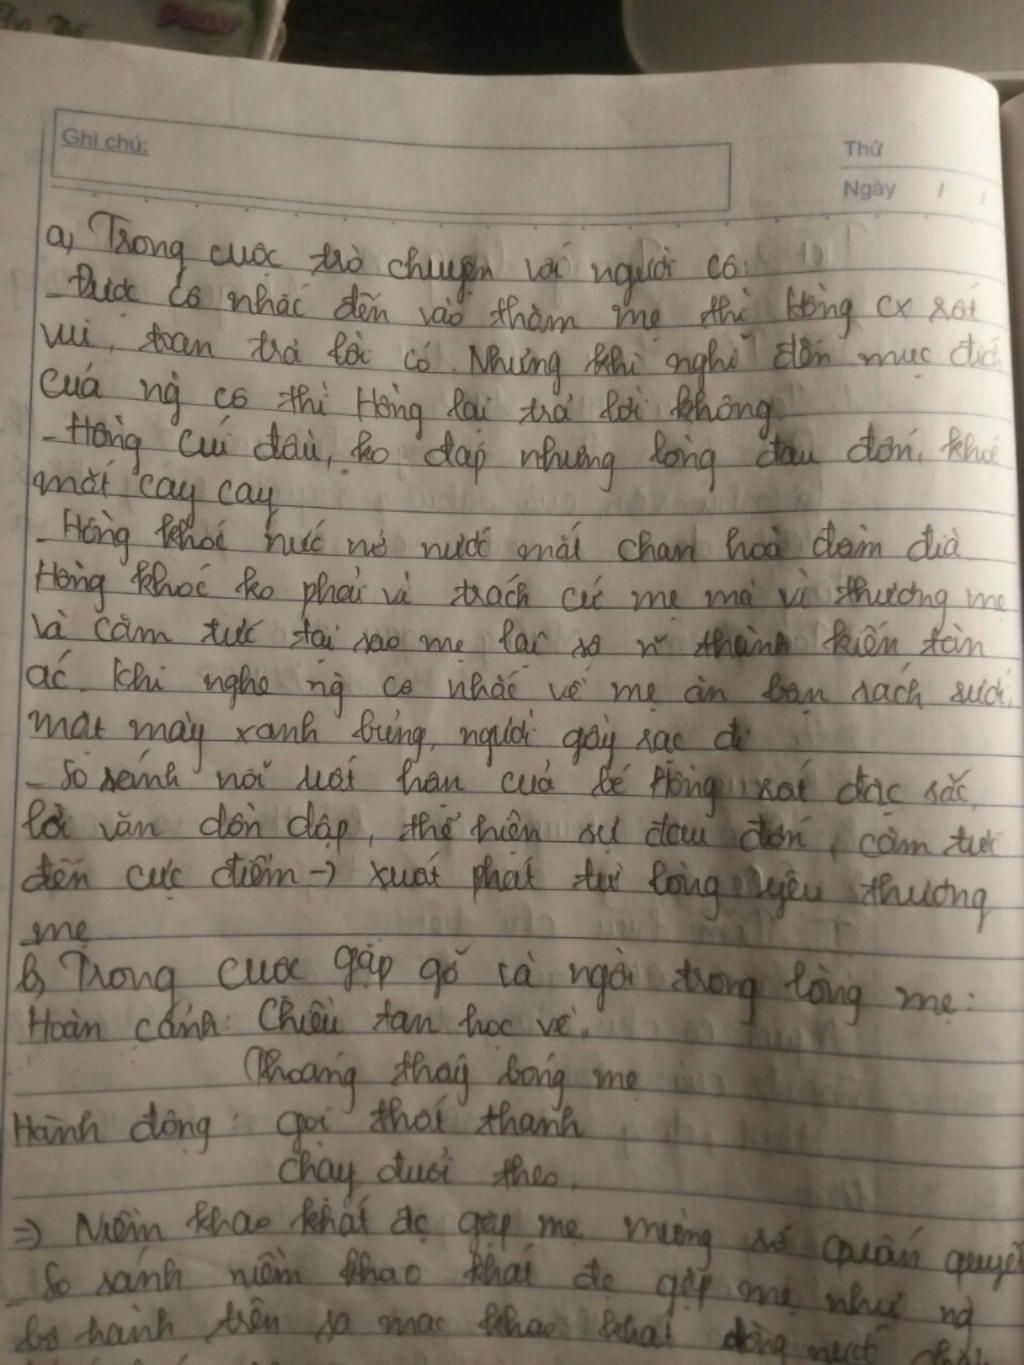 Ghi chú:
Thứ
Ngày / /
a, Trong cuộc trò chuyện với người cô:
- Được cô nhắc đến vào thăm mẹ thì Hồng cx rất
vui, toan trả lời có. Nhưng khi nghĩ đến mục đích
của ng cô thì Hồng lại trả lời không
- Hồng cúi đầu, ko đáp nhưng lòng đau đớn, khoé
mắt cay cay
- Hồng khóc nức nở nước mắt chan hoà đầm đìa
Hồng khóc ko phải vì trách cứ mẹ mà vì thương mẹ
và căm tức tại sao mẹ lại sợ n~ thành kiến tàn
ác. Khi nghe ng cô nhắc về mẹ ăn bận rách rưới,
mặt mày xanh bủng, người gầy rạc đi
- So sánh nỗi uất hận của bé Hồng rất đặc sắc,
lời văn dồn dập, thể hiện sự đau đớn, căm tức
đến cực điểm → xuất phát từ lòng yêu thương
mẹ
b, Trong cuộc gặp gỡ và ngồi trong lòng mẹ:
Hoàn cảnh: Chiều tan học về.
Thoáng thấy bóng mẹ
Hành động: gọi thất thanh
chạy đuổi theo.
⇒ Niềm khao khát đc gặp mẹ, mừng rỡ quấn quýt
- So sánh niềm khao khát đc gặp mẹ như ng
bộ hành trên sa mạc khao khát dòng nước